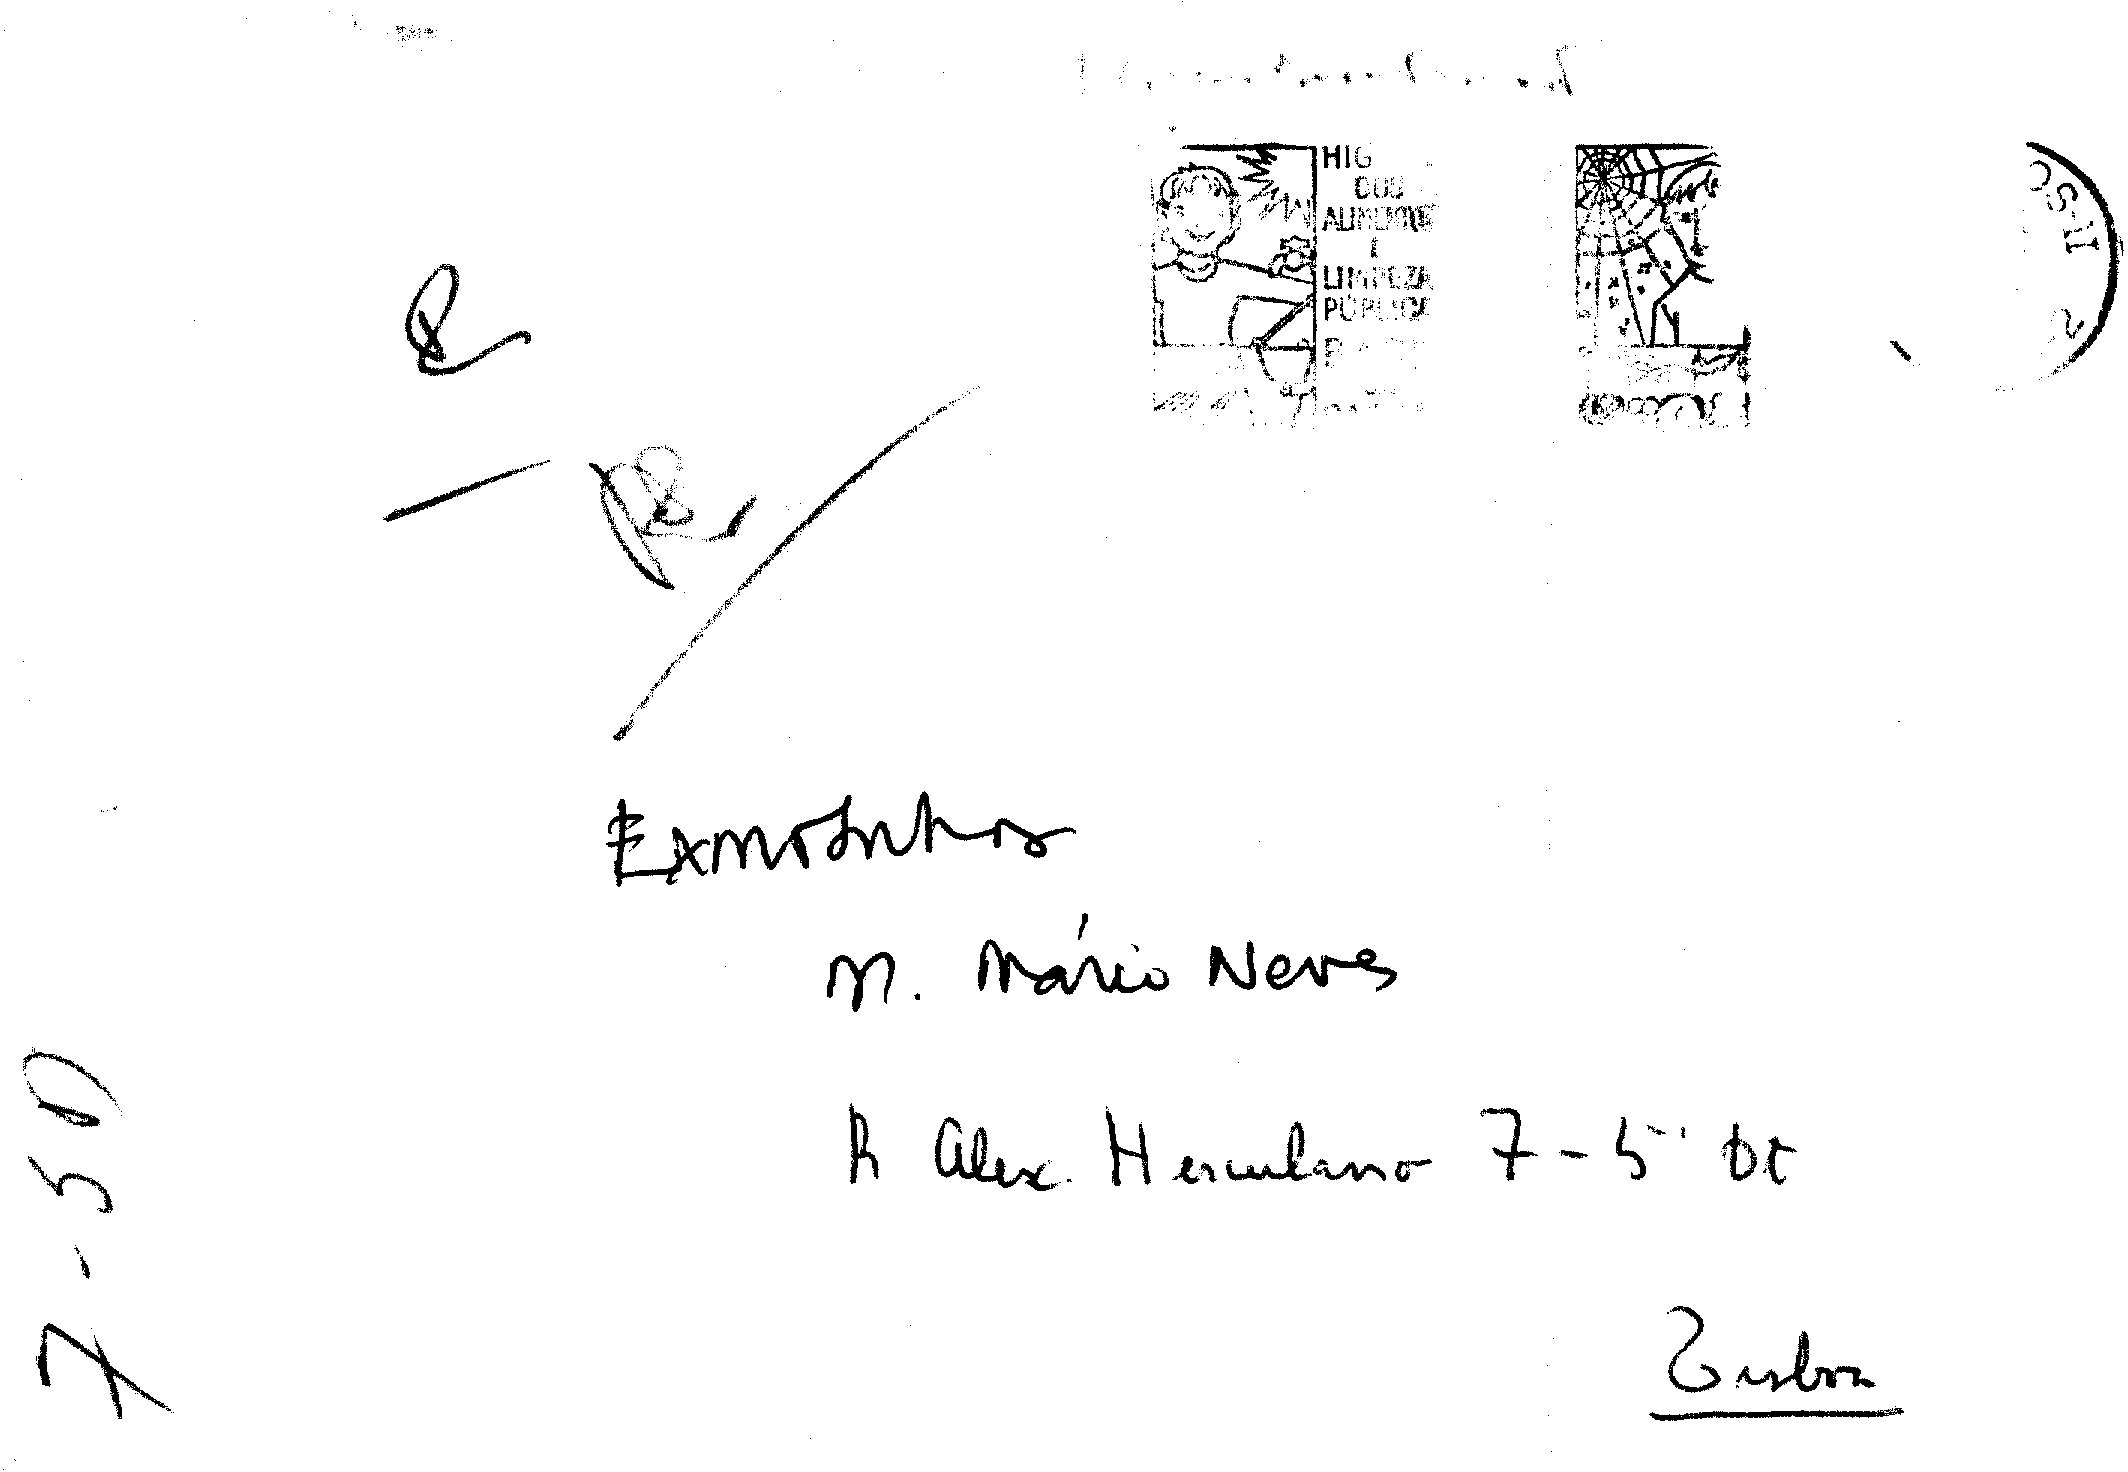 HIG
DOS
ALIMENTOS
E
LIMPEZA
PÚBLICA
Exmo Senhor
M. Mário Neves
R Alex. Herculano 7-5º Dt
Lisboa
7-50